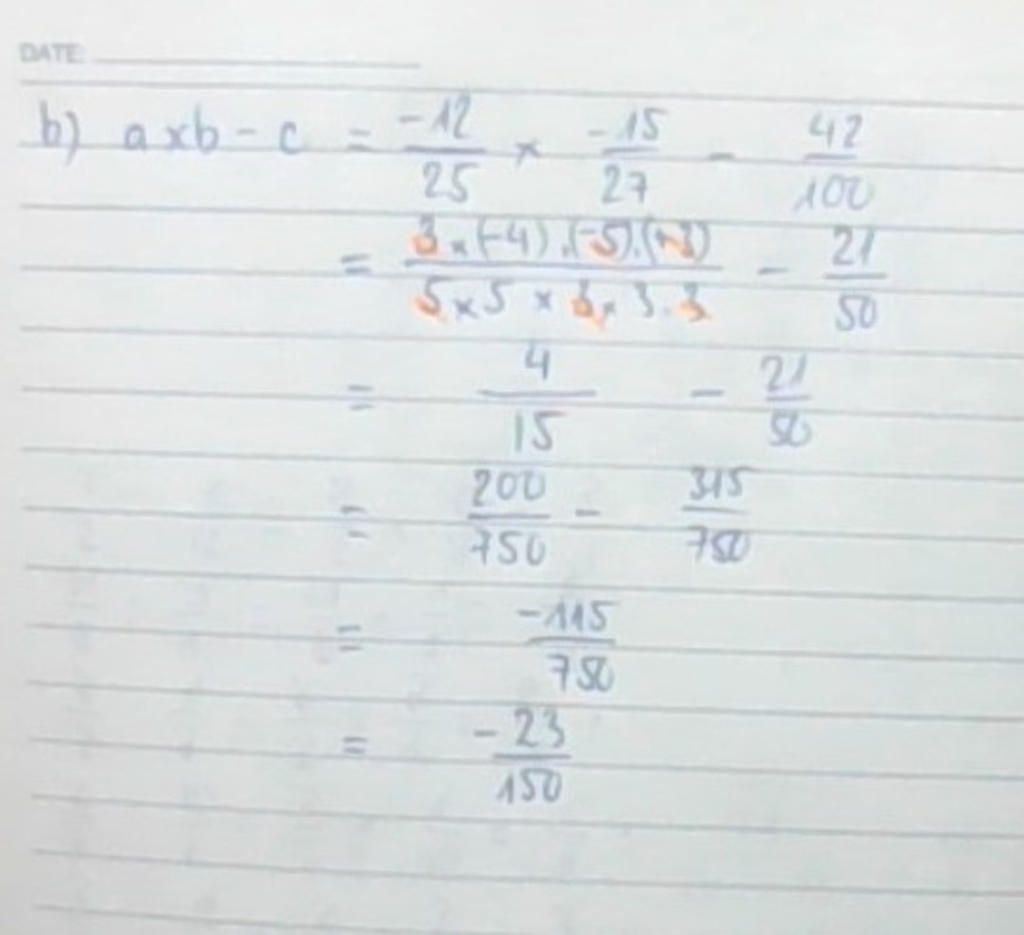 DATE:
b) a x b - c = -12/25 x -15/27 - 42/100
= 3 x (-4) . (-5) . (+3)/5 x 5 x 3 x 3 . 3 - 21/50
= 4/15 - 21/50
= 200/750 - 315/750
= -115/750
= -23/150